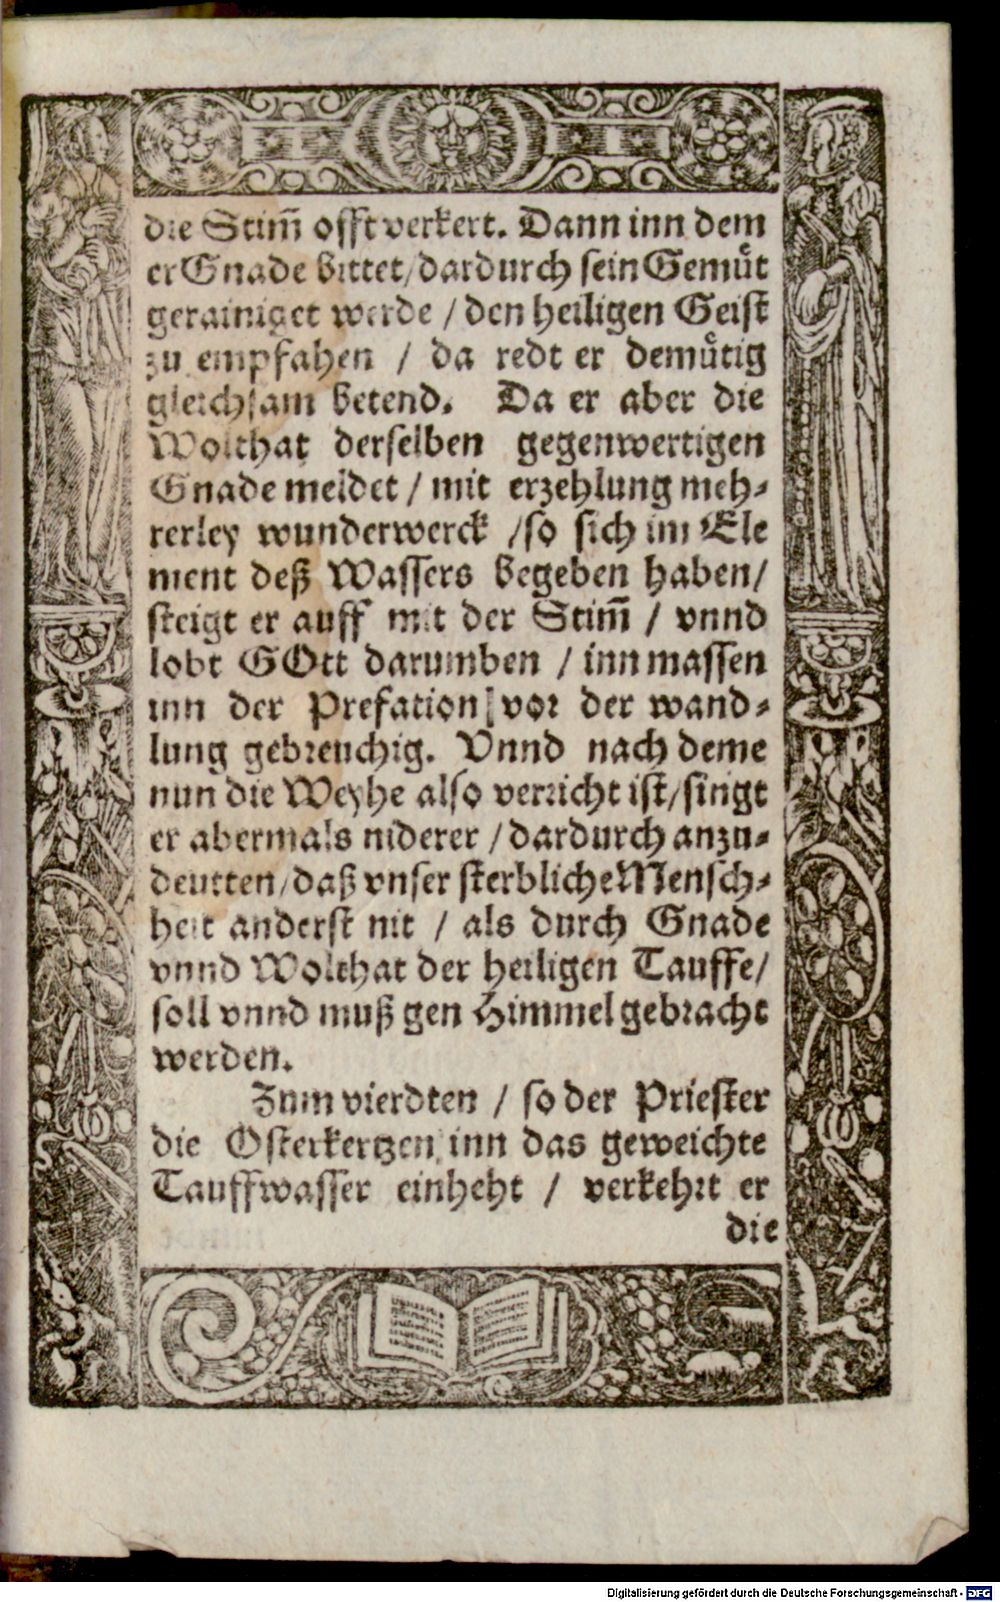 die Stim̃ offt verkert. Dann inn dem
er Gnade bittet/dardurch sein Gemuͤt
gerainiget werde / den heiligen Geist
zu empfahen / da redt er demuͤtig
gleichsam betend. Da er aber die
Wolthat derselben gegenwertigen
Gnade meldet / mit erzehlung meh-
rerley wunderwerck /so sich im Ele
ment deß Wassers begeben haben/
steigt er auff mit der Stim̃ / vnnd
lobt GOtt darumben / inn massen
inn der Prefation vor der wand-
lung gebreuchig. Vnnd nach deme
nun die Weyhe also verricht ist/singt
er abermals niderer / dardurch anzu-
deutten/daß vnser sterbliche Mensch-
heit anderst nit / als durch Gnade
vnnd Wolthat der heiligen Tauffe/
soll vnnd muß gen Himmel gebracht
werden.
Zum vierdten / so der Priester
die Osterkertzen inn das geweichte
Tauffwasser einheht / verkehrt er
die
Digitalisierung gefördert durch die Deutsche Forschungsgemeinschaft - DFG